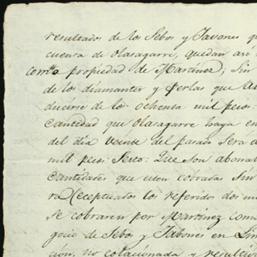 resultados de los Sebos y Javones q
cuenta de Olazagarre, quedan asi
como propiedad de Martinez; Sin
de los diamantes y perlas que
ducirse de los ochenta mil pesos
Cantidad que Olazagarre haya en
del dia veinte del pasado Sera
mil pesos. Sesto: Que son abonab
Cantidades que esten cobradas Sin
ra Exceptuados los referidos dos mi
se cobraren por Martinez Como
gocio de Sebos y Jabones en Lim
cion, no colacionada y